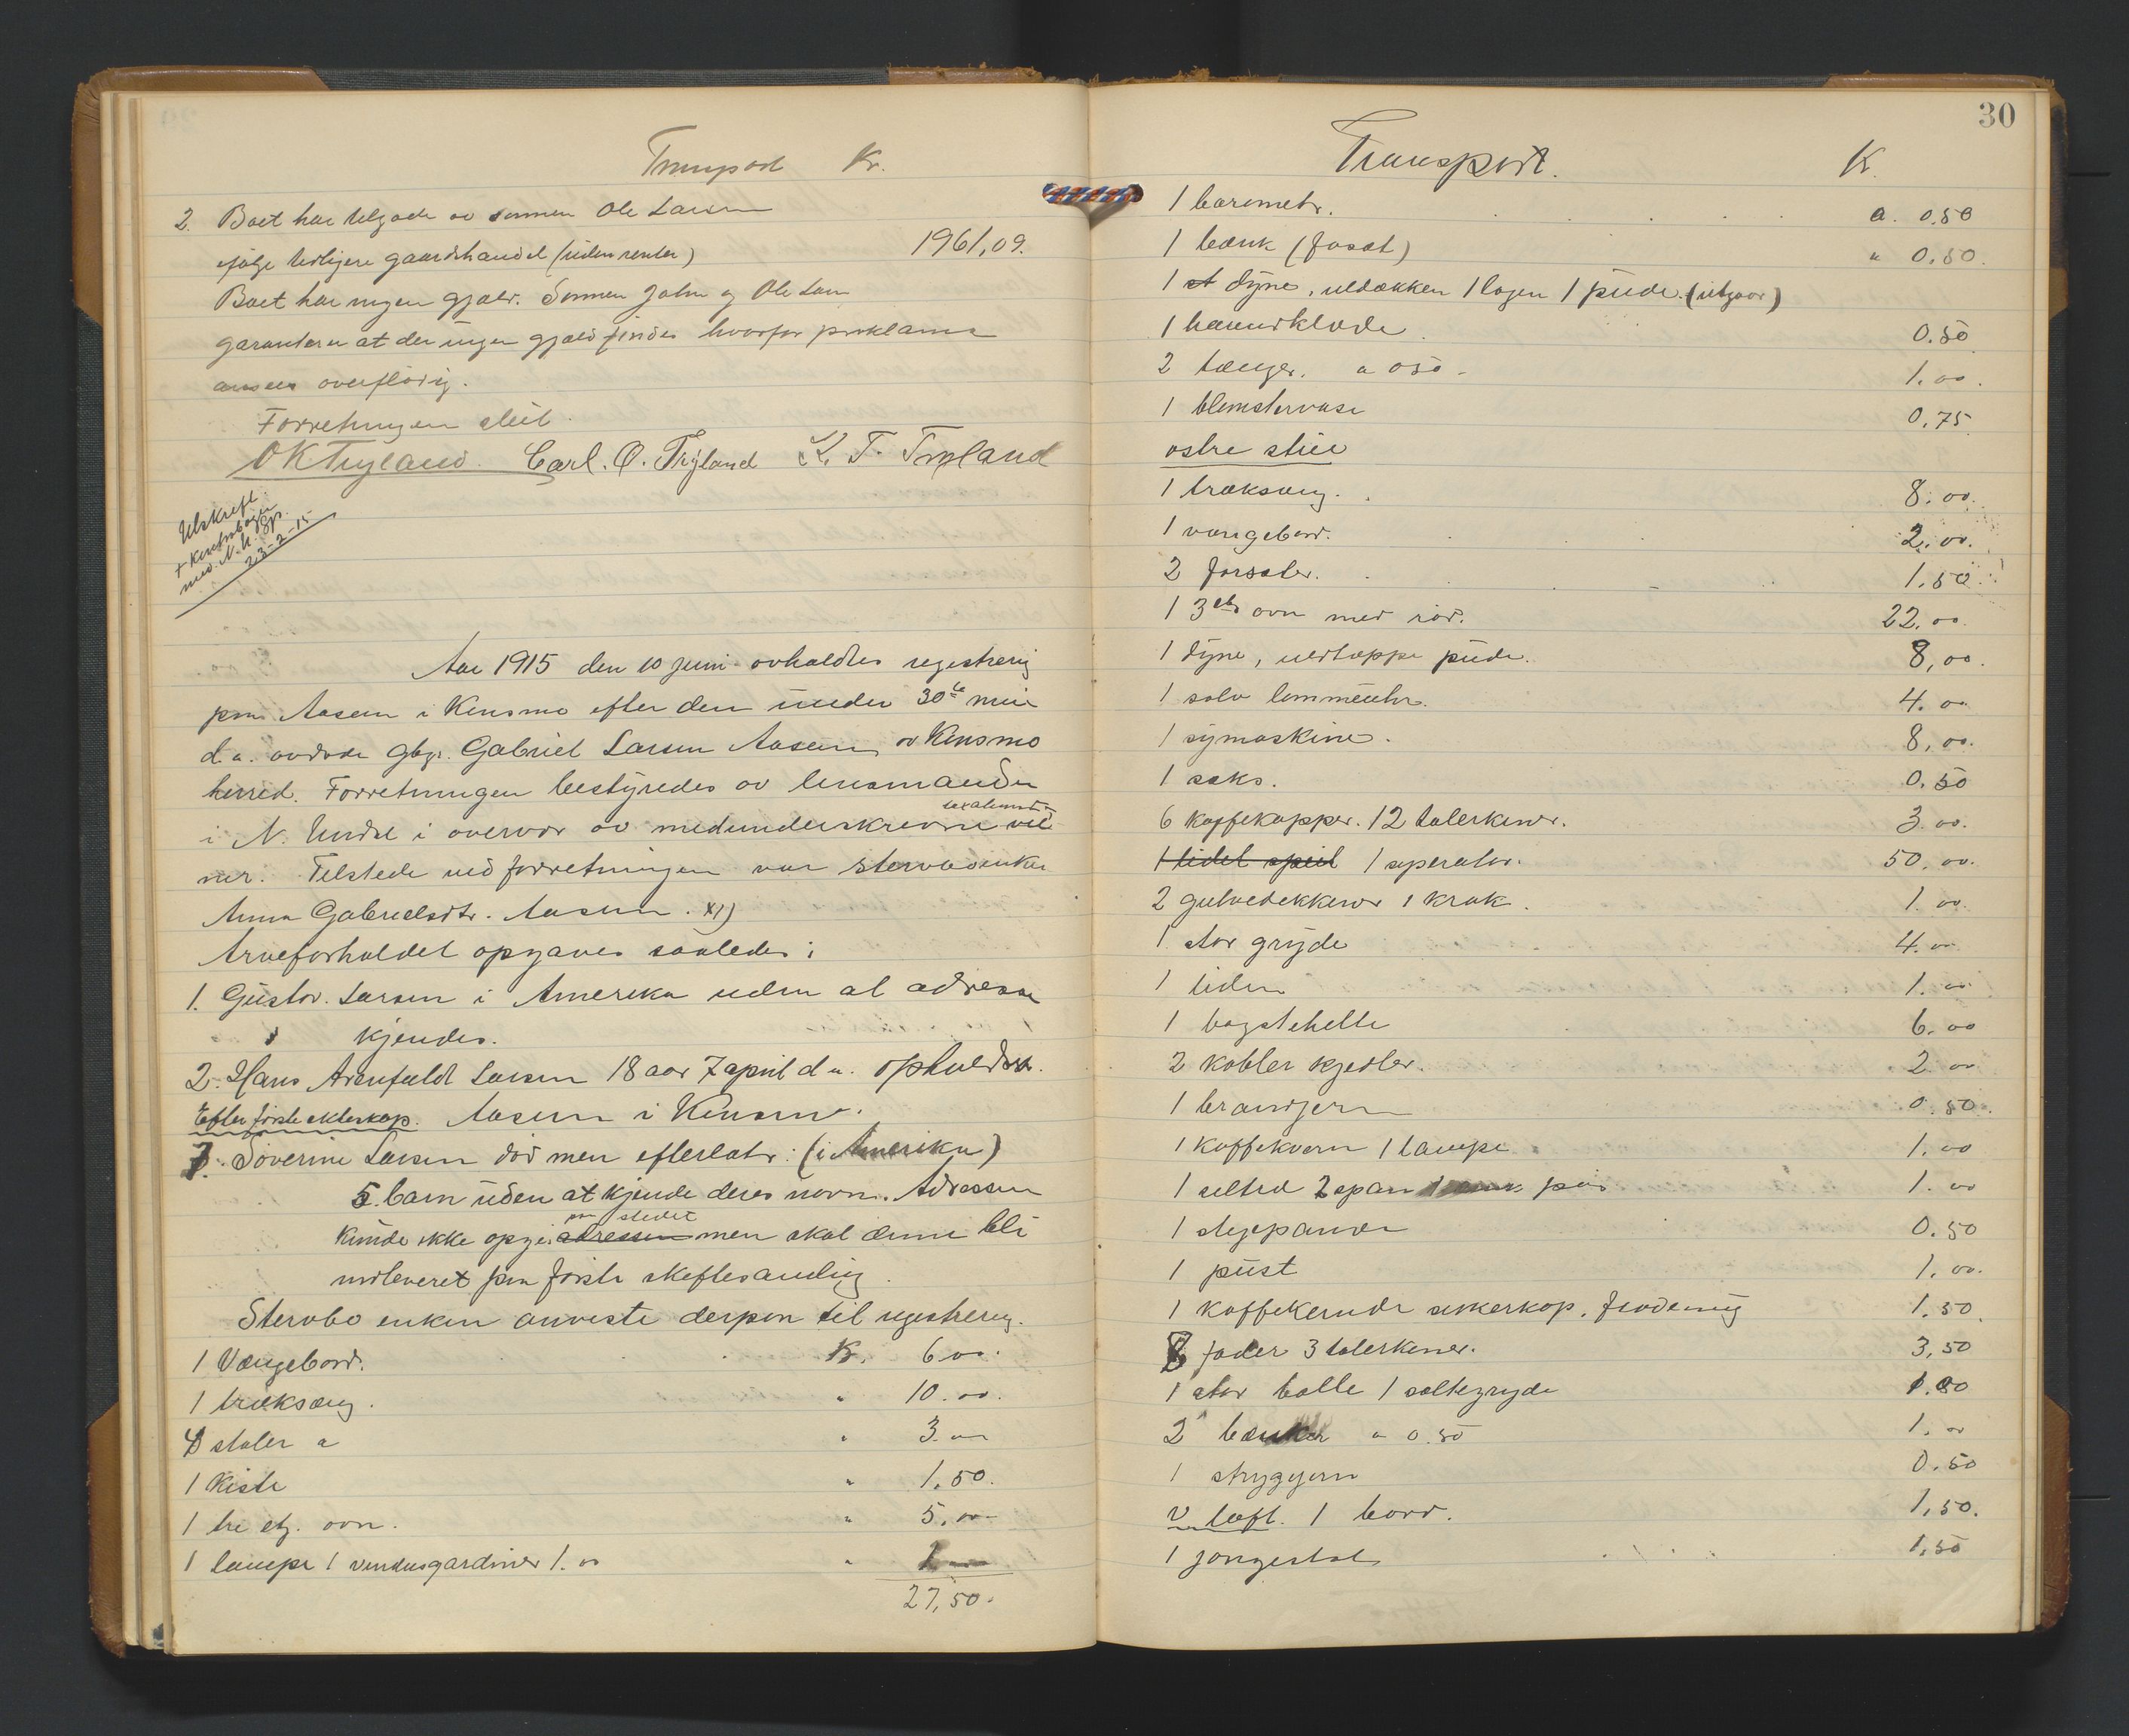 Transport Kr.
2. Boet har tilgode av sønnen Ole Larsen
ifølge tidligere gaardshandel (uden renter) 1961,09.
Boet har ingen gjæld. Sønnen John og Ole Lars
garanterer at der ingen gjæld findes hvorfor proklama
ansees overflødig.
Forretningen slut.
O K Tryland. Carl. O. Tryland K. T. Tryland
Utskrift
+ Kontrabøger
med. N. U. Sp.
23-2-15
Aar 1915 den 10 juni avholdtes registrering
paa Aasen i Konsmo efter den under 30te mai
d.a. avdøde gbr. Gabriel Larsen Aasen av Konsmo
herred. Forretningen bestyredes av lensmanden
i N. Undal i overvær av medunderskrevne taxalensm. vid
ner. Tilstede ved forretningen var stervboenken
Anna Gabrielsdtr. Aasen. x1)
Arveforholdet opgaves saaledes:
1. Gustav. Larsen i Amerika uden at adresse
kjendes.
2. Hans Arenfeldt Larsen 18 aar 7 april d a. opholdss.
Efter første ekteskap. Aasen i Konsmo.
3. Søverine Larsen død men efterlatr: (i Amerika)
5 barn uden at kjende deres navn. Adressen
kunde ikke opgi. adressen paa stedet men skal denne bli
indleveret paa første skiftesamling
Stervbo enken anviste derpaa til registrering.
1 Vængebord. Kr. 6 00.
1 træksæng. " 10. 00.
4 stoler a " 3. 00
1 Kiste " 1.50.
1 tre etg. ovn. " 5.00
1 lampe 1 vindusgardiner 1. 00 " 2 00
27,50.
30
Transport. K
1 barometr. a. 0.50
1 bænk (fasat) " 0.50.
1 st dyne, uldækken 1 lagen 1 pude. (utgaar)
1 haandklæde 0.50
2 tænger. a 050 - 1.00.
1 blomstervase 0.75
østre stue
1 træksæng. 8.00.
1 vængebord. 2.00.
2 forsater. 1.50
1 3 etg ovn med rør. 22.00.
1 dyne, uldtæppe pude. 8,00.
1 sølv lommeuhr. 4.00
1 symaskine. 8,00.
1 saks. 0.50
6 kaffekopper. 12 talerkener. 3.00.
1 lidet speil 1 seperator. 50.00.
2 gulvedekkener 1 krak. 1.00
1 stor gryde 4.00
1 liden 1.00
1 bagstehelle 6.00
2 kobler kjedler. 2 00
1 brandjern 0.50.
1 kaffekvern 1 lampe 1.00
1 sellid 2 span pøs 1.00
1 stegepande 0.50
1 pust 1.00.
1 kaffekande sukerkop. flødemug 1.50.
8 fader 3 talerkener. 3,50
1 stor bolle 1 saltegryde 1.00
2 bænker a 0.50 1.00
1 strygejern 0.50
v loft. 1 bord. 1,50.
1 gongestol 1.50